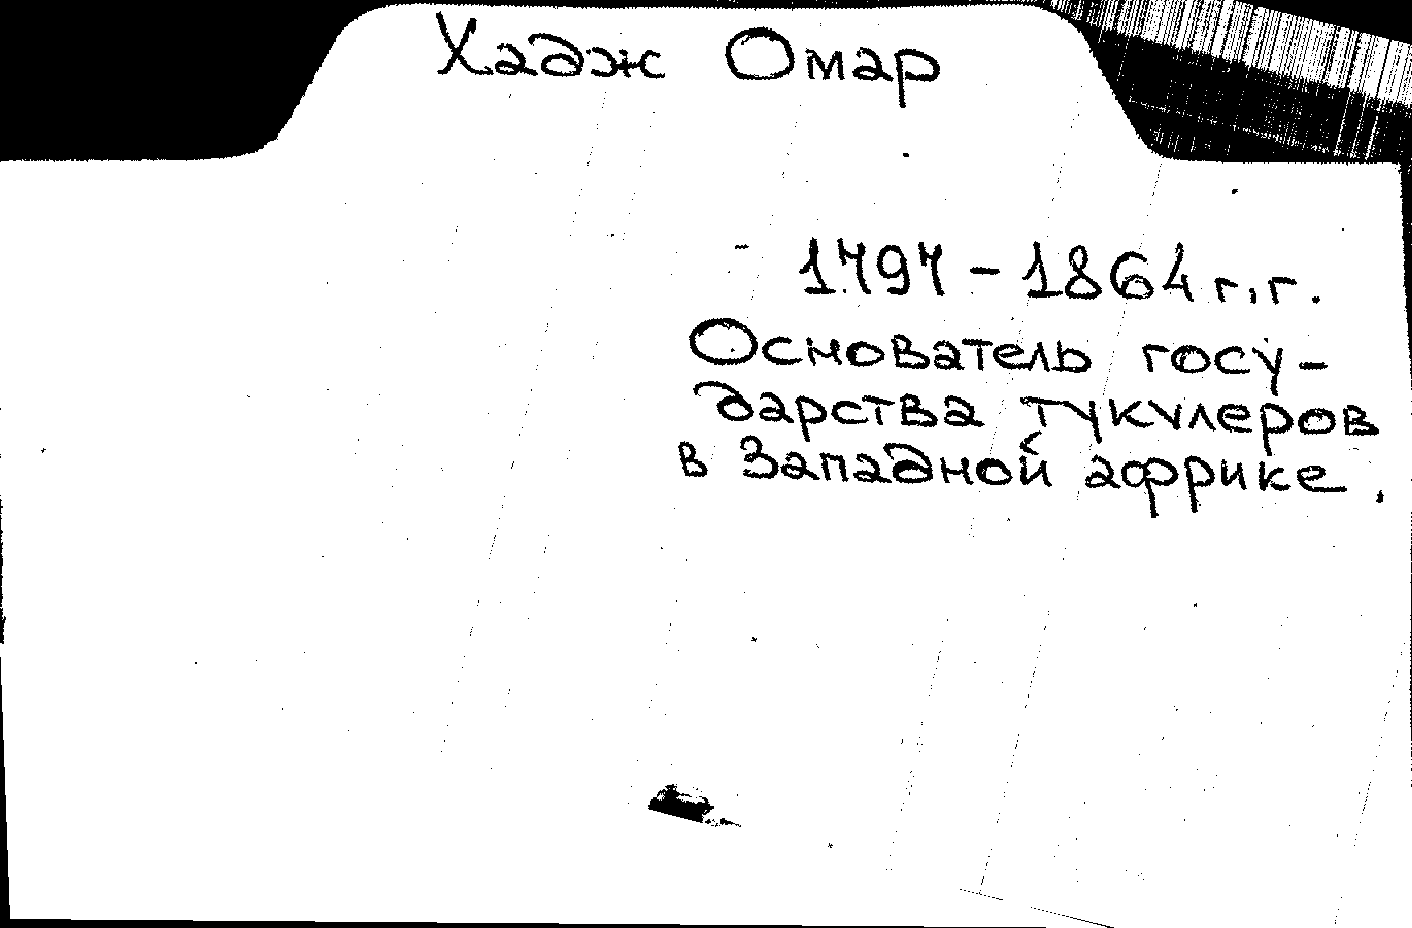 Хадж Омар
- 1797 - 1864 г.г.
Основатель госу-
дарства тукулеров
в Западной африке.